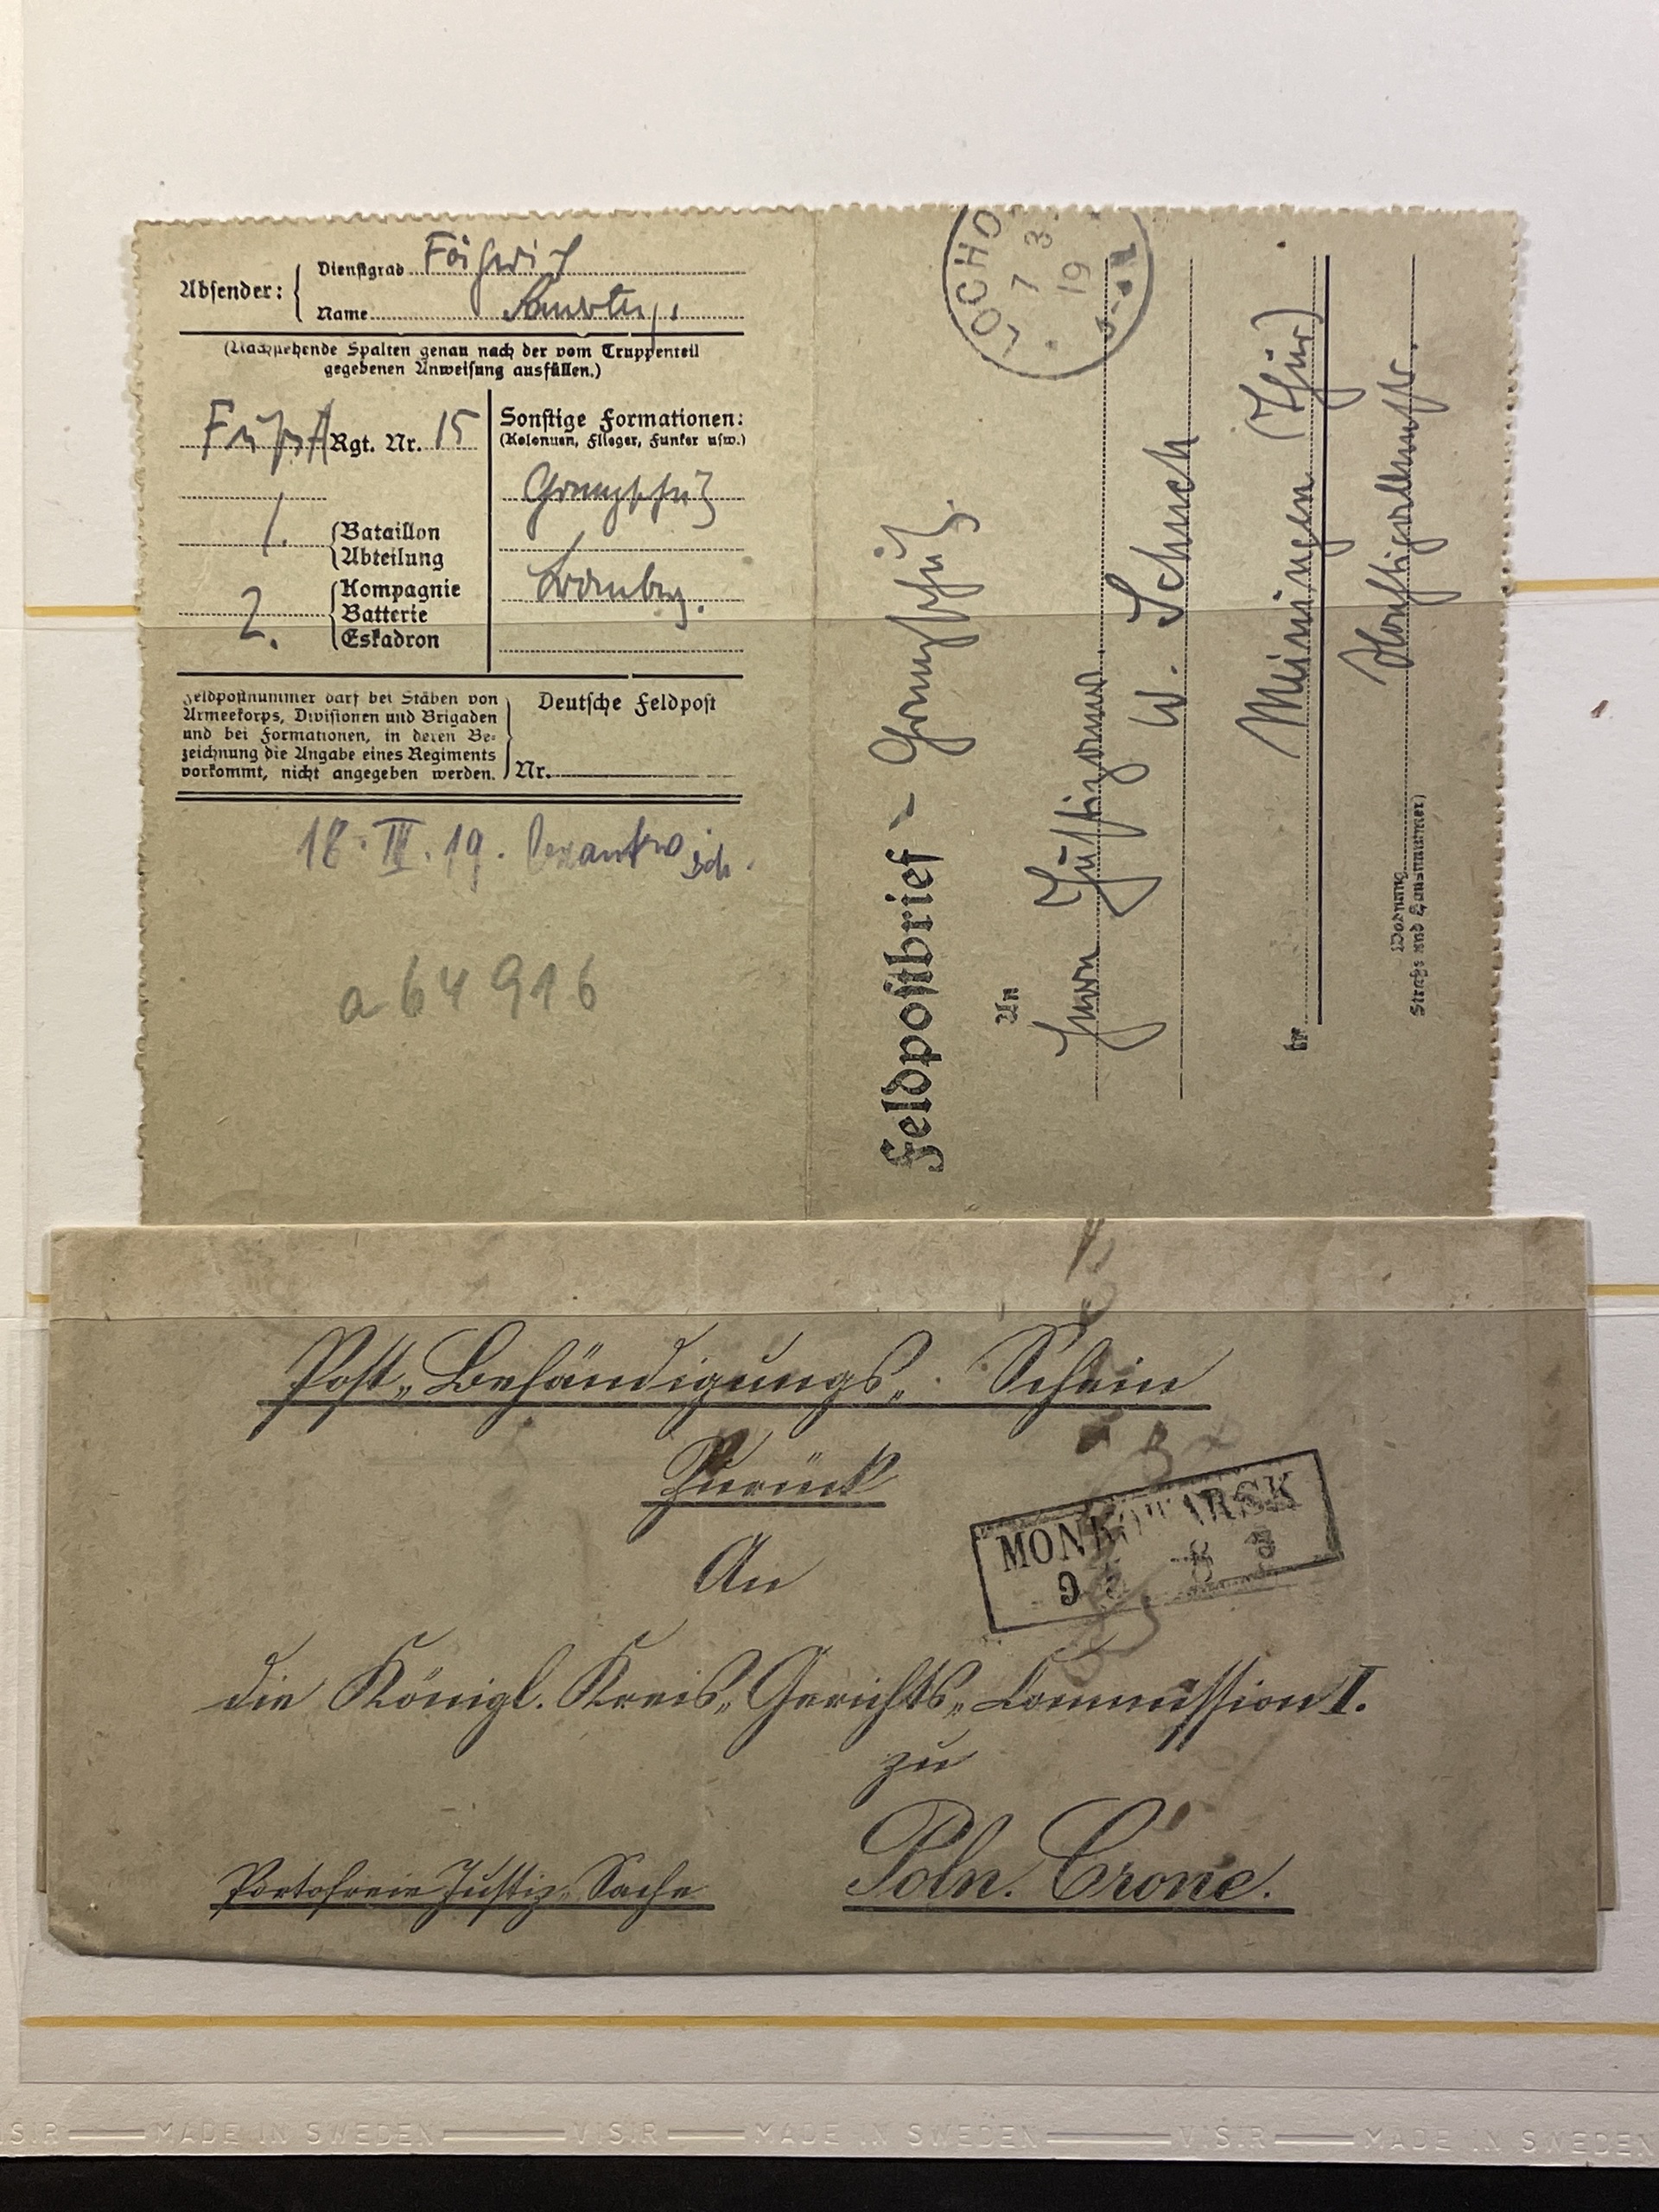 Absender:
Dienstgrad
Name
(Nachstehende Spalten genau nach der vom Truppenteil
gegebenen Anweisung ausfüllen.)
Rgt. Nr. 15
1. Bataillon
Abteilung
2. Kompagnie
Batterie
Eskadron
Sonstige Formationen:
(Kolonnen, Flieger, Funker usw.)
Grenzschutz
Feldpostnummer darf bei Stäben von
Armeekorps, Divisionen und Brigaden
und bei Formationen, in deren Be-
zeichnung die Angabe eines Regiments
vorkommt, nicht angegeben werden.
Deutsche Feldpost
Nr.
18. III. 19.
a 64 916
Feldpostbrief - Grenzschutz
LOCHO
7 3
19
An
Herrn
W. Schuch
in Meiningen (Thür)
Wohnung
Straße und Hausnummer)
Post-Behändigungs-Schein
Zurück
An
MONKOWARSK
9 8
die Königl. Kreis-Gerichts-Commission I.
zu
Poln. Crone.
Portofreie Justiz-Sache
VISIR MADE IN SWEDEN VISIR MADE IN SWEDEN VISIR MADE IN SWEDEN